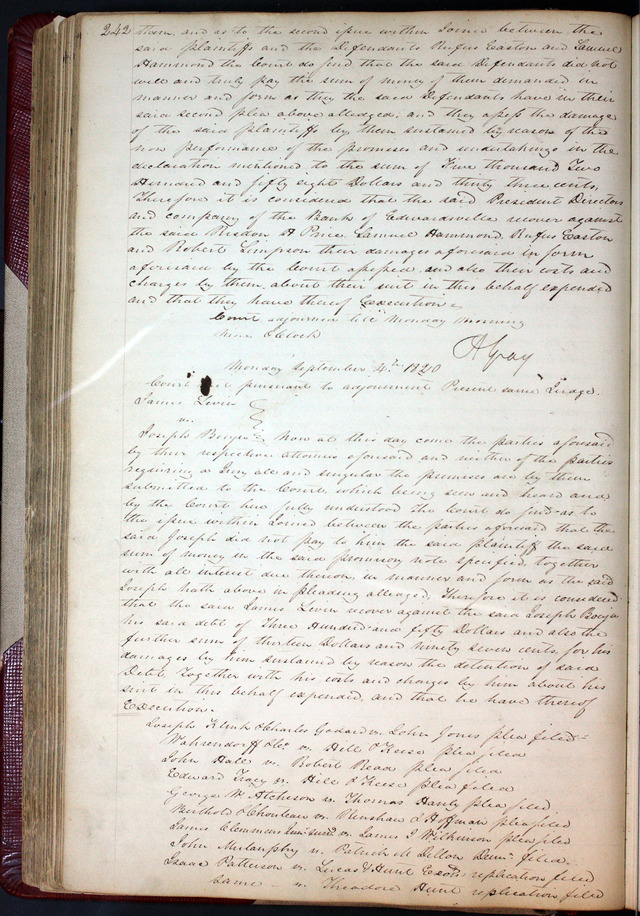 242 them, and as to the second issue within Joined between the
said plaintiffs and the Defendants Rufus Easton and Samuel
Hammond the Court do find that the said Defendants did not
well and truly pay the sum of money of them demanded in
manner and form as they the said Defendants have in their
said second plea above alledged; and they assess the damage
of the said plaintiffs by them sustained by reason of the
non performance of the promises and undertakings in the
declaration mentioned to the sum of Five thousand Two
Hundred and fifty eight Dollars and thirty three cents,
Therefore it is considered that the said President Directors
and company of the Bank of Edwardsville recover against
the said Risdon H Price Samuel Hammond, Rufus Easton
and Robert Simpson their damages aforesaid in form
aforesaid by the Court assessed and also their costs and
charges by them about their suit in this behalf expended
and that they have thereof Execution
Court adjourned till Monday morning
nine OClock
A Gray
Monday September 4th 1820
Court pursuant to adjournment Present same Judge.
James Levin
vs.
Joseph Bouju Now at this day come the parties aforesaid
by their respective attornies aforesaid and neither of the parties
requiring a Jury all and singular the premises are by them
submitted to the Court, which being seen and heard and
by the Court here fully understood the Court do find as to
the issue within Joined between the parties aforesaid that the
said Joseph did not pay to him the said plaintiff the said
sum of money in the said promissory note specified, together
with all interest due thereon, in manner and form as the said
Joseph hath above in pleading alleaged, Therefore it is considered
that the said James Levin recover against the said Joseph Bouju
his said debt of Three Hundred and fifty Dollars and also the
further sum of thirteen Dollars and ninety seven cents, for his
damages by him sustained by reason the detention of said
Debt, together with his costs and charges by him about his
suit in this behalf expended, and that he have thereof
Execution.
Joseph Klink & Charles Godard vs. John Jones plea filed
Wahrendorff &Co vs. Hill & Keese plea filed
John Hall vs. Robert Read plea filed
Edward Tracy vs. Hill & Keese plea filed
George W Atcheson vs. Thomas Hanly plea filed
Berthold & Chouteau vs. Renshaw & Hoffman plea filed
James Clemmens vs. James J Wilkinson plea filed
John Mulanphy vs. Patrick M Dillon Demr. filed.
Isaac Patterson vs. Lucas & Hunt Exors replication filed
Same vs. Theodore Hunt replication filed